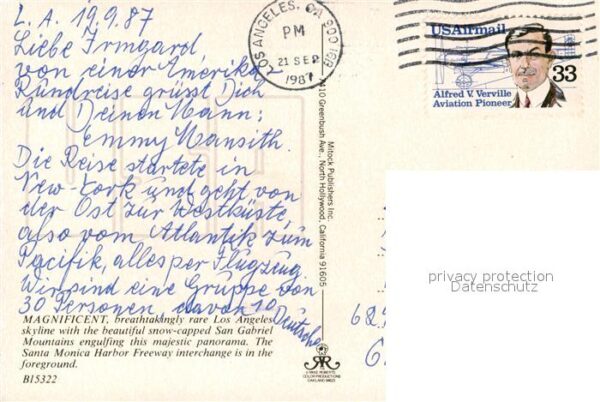 L. A. 19.9.87
Liebe Irmgard
von einer Amerika
Rundreise grüsst Dich
und Deinen Mann:
Emmy Mansith.
Die Reise startete in
New-York und geht von
der Ost zur Westküste,
also vom Atlantik zum
Pacifik, alles per Flugzeug
Wir sind eine Gruppe von
30 Personen davon 10 Deutsche
MAGNIFICENT, breathtakingly rare Los Angeles
skyline with the beautiful snow-capped San Gabriel
Mountains engulfing this majestic panorama. The
Santa Monica Harbor Freeway interchange is in the
foreground.
B15322
LOS ANGELES, CA
PM
21 SEP
1987
Mitock Publishers Inc.
Greenbush Ave., North Hollywood, California 91605
USAirmail
33
Alfred V. Verville
Aviation Pioneer
privacy protection
Datenschutz